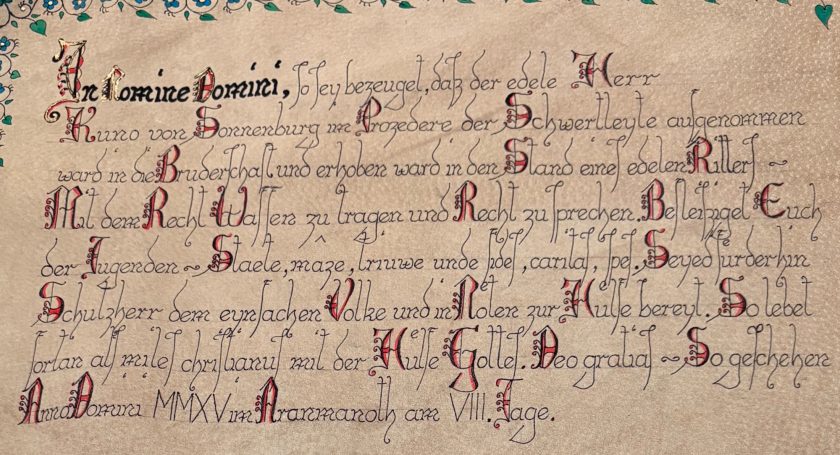 In Nomine Domini, so sey bezeuget, daß der edele Herr
Kuno von Sonnenburg im Prozedere der Schwertleyte aufgenommen
ward in die Bruderschaft und erhoben ward in den Stand eines edelen Ritters ~
Mit dem Recht Waffen zu tragen und Recht zu sprechen. Befleiziget Euch
der Tugenden ~ Staete, maze, triuwe unde fides, caritas, spes. Seyed fürderhin
Schutzherr dem eynfachen Volke und in Noten zur Hülfe bereyt. So lebet
fortan als miles christianus mit der Hülfe Gottes. Deo gratias ~ So geschehen
Anno Domini MMXV im Aranmanoth am VIII. Tage.